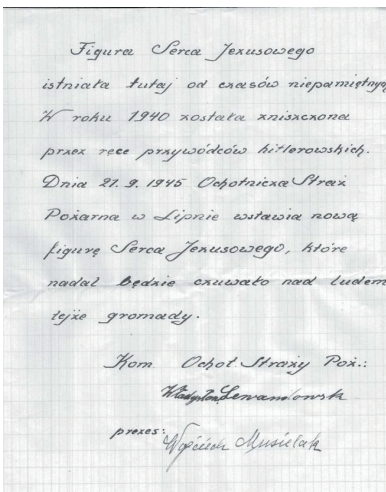 Figura Serca Jezusowego
istniała tutaj od czasów niepamiętnyc
W roku 1940 została zniszczona
przez ręce przywódców hitlerowskich.
Dnia 21.9.1945 Ochotnicza Straż
Pożarna w Lipnie wstawia nową
figurę Serca Jezusowego, które
nadal będzie czuwało nad ludem
tejże gromady.
Kom. Ochot. Straży Poż.:
Władysław Lewandowsk
prezes:
Wojciech Musielak